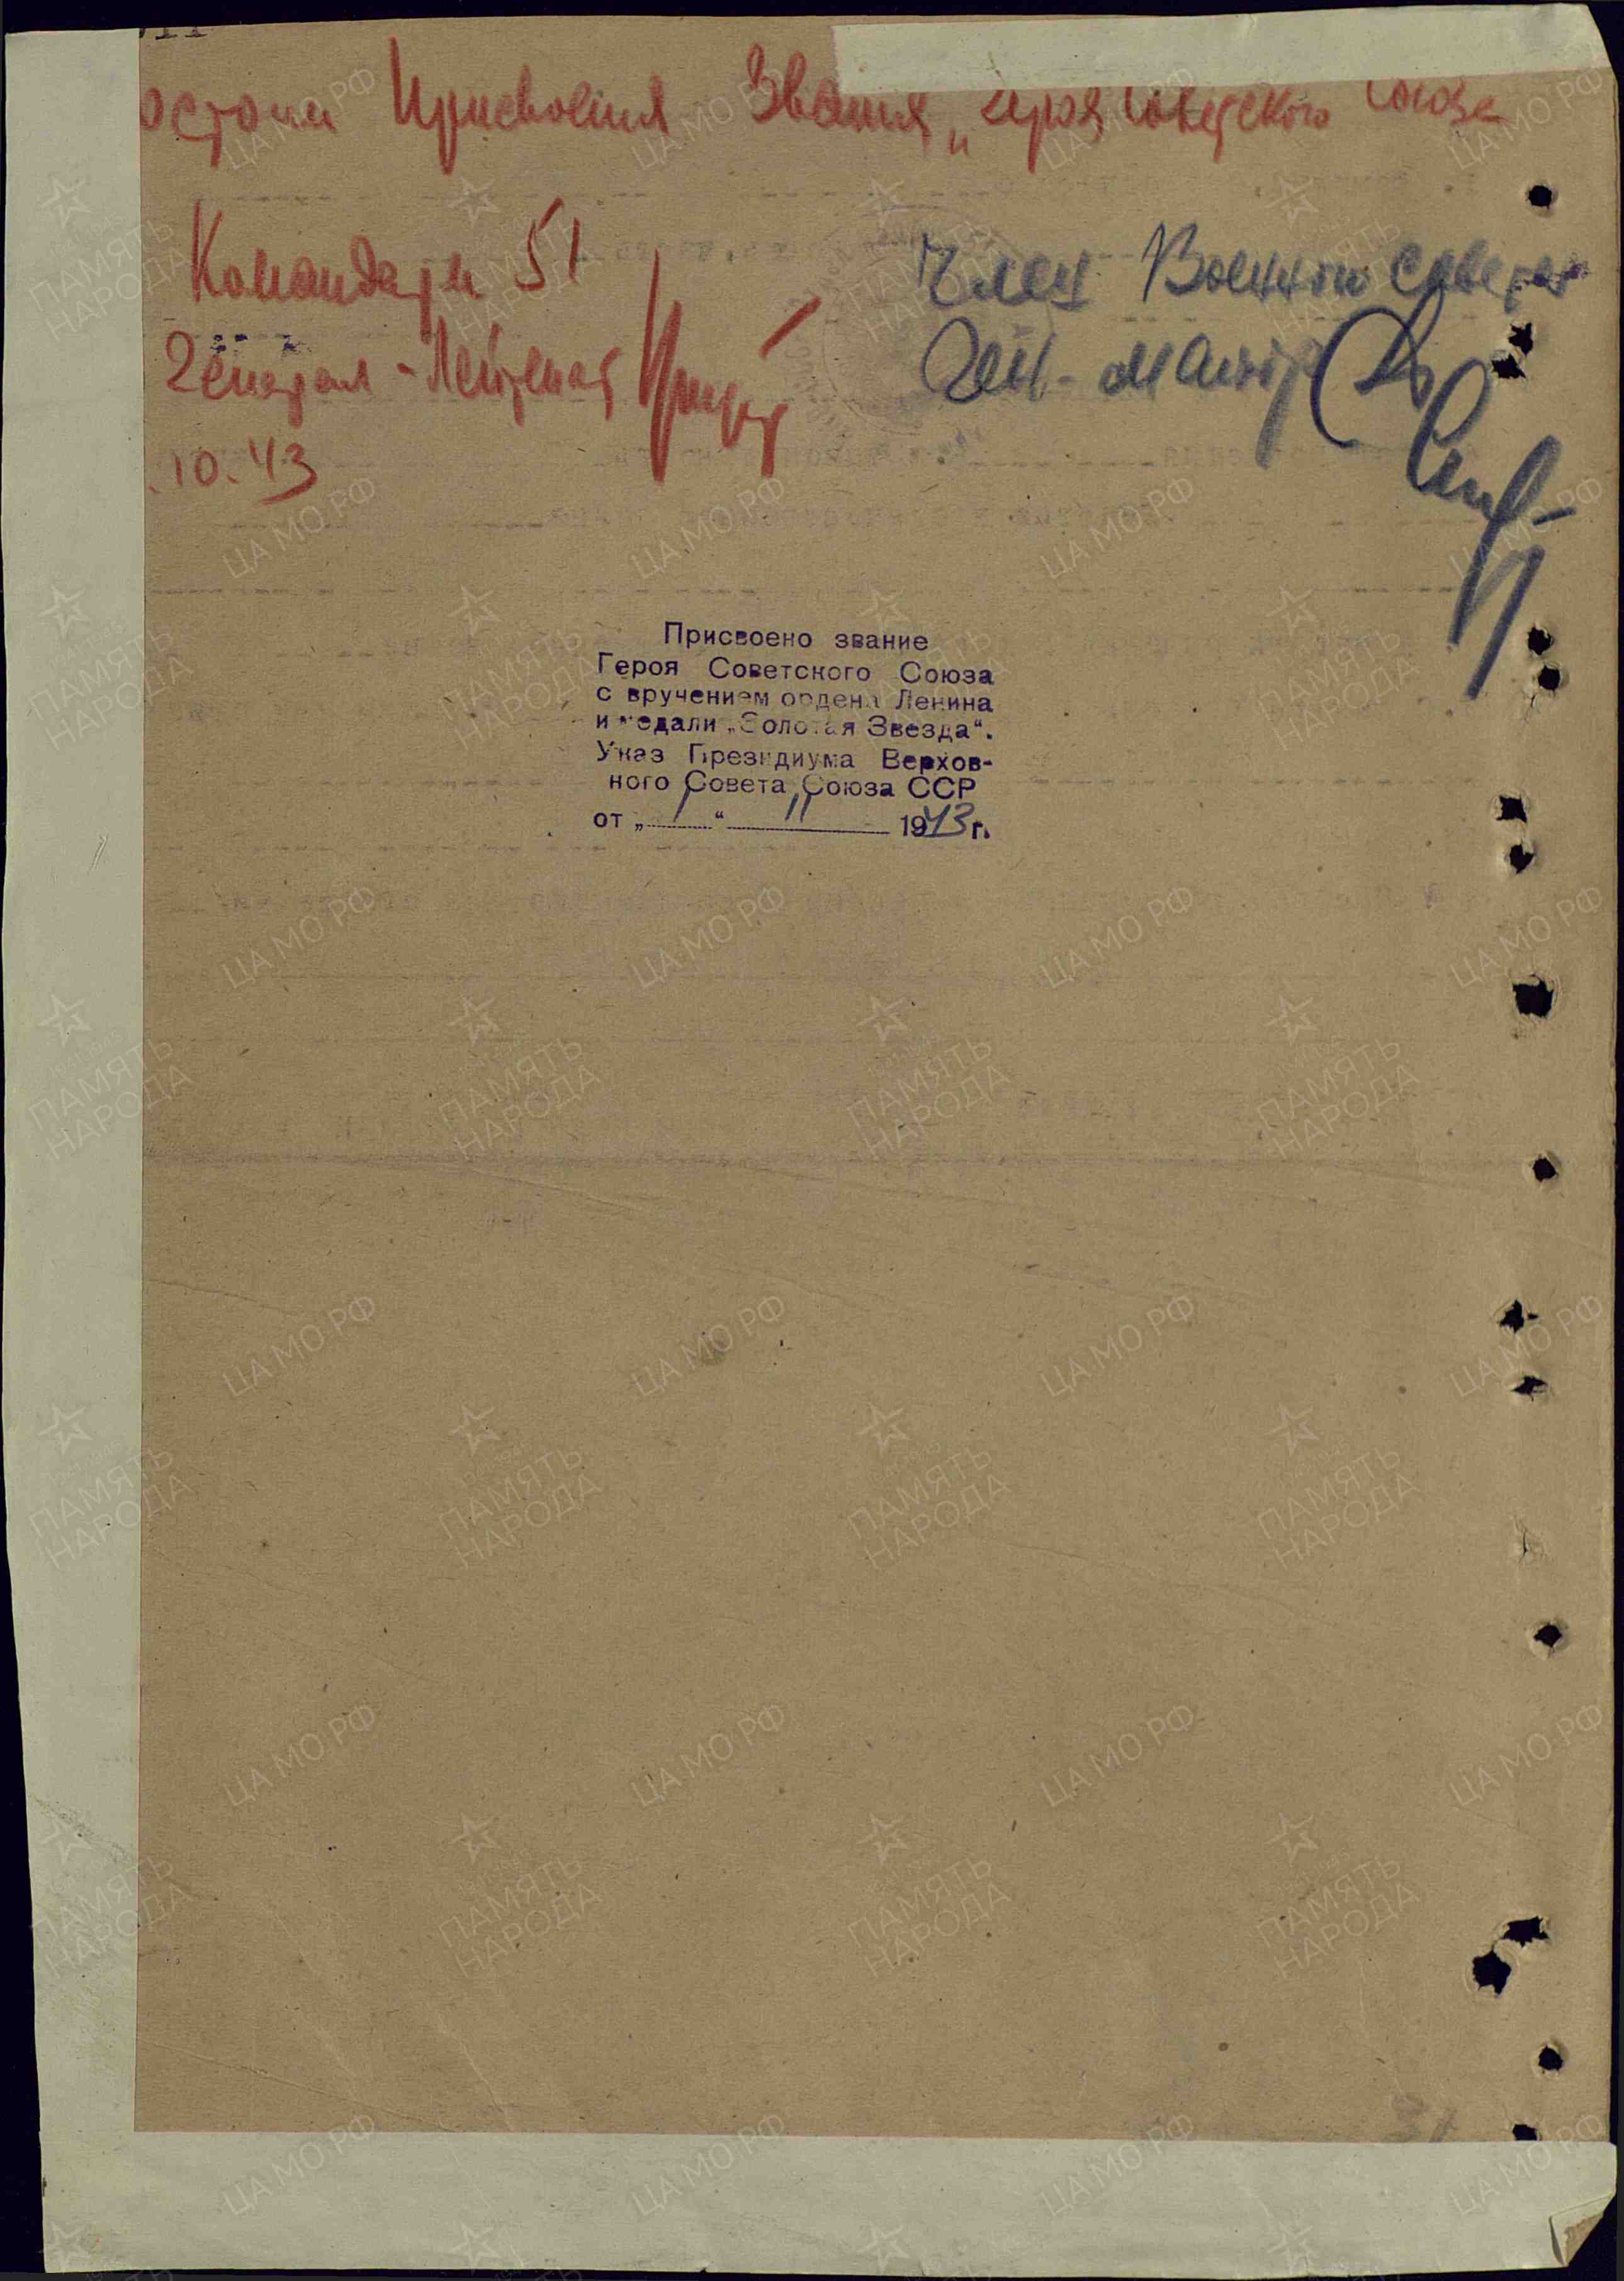 Присвоения Звания „героя Советского Союза
Командарм 51
Генерал-Лейтенант
.10.43
Член Военного совета
Ген.-майор
Присвоено звание
Героя Советского Союза
с вручением ордена Ленина
и медали „Золотая Звезда“.
Указ Президиума Верхов-
ного Совета Союза ССР
от „1“ 11 1943 г.
ЦА МО РФ
ПАМЯТЬ
НАРОДА